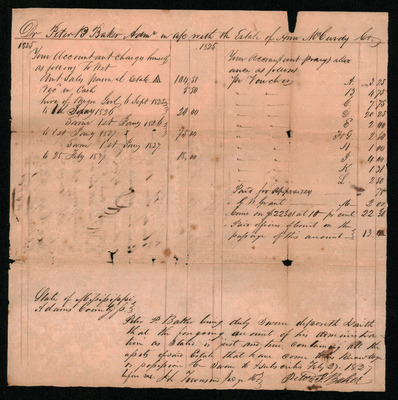 Dr Peter P Baker Admr in a/c with the Estate of Ann McCurdy Cr.
1825
1825
Your Accountant charges himself
as follows To Wit
Amt Sales personal Estate
in Cash
hire of Negro Girl 6 Sept 1825
to 1st Jany 1826 20.00
Same 1st Jany 1826
to 1st Jany 1827 75.00
Same 1st Jany 1827
to 25 Feby 1827 15.00
Your Accountant prays allow-
ances as follows
Per Voucher A 3.25
B 4.75
C 7.75
D 20.25
E 2.00
G 2.00
H 1.00
I 4.00
K 1.31
L 2.50
Paid for Appraisers 75
G W Grant M 2.00
Come on $223.01 at 10 pr cent 22.30
Fair Copies & Court on the
passage of this amount 13
State of Mississippi
Adams County Ss.
Peter P. Baker being duly Sworn deposeth & saith
that the foregoing account of his administra-
tion as stated is just and true, containing all the
assets of said Estate that have come to his knowledge
or possession Sworn to & subscribed Feby 27, 1827
before me
Peter P Baker